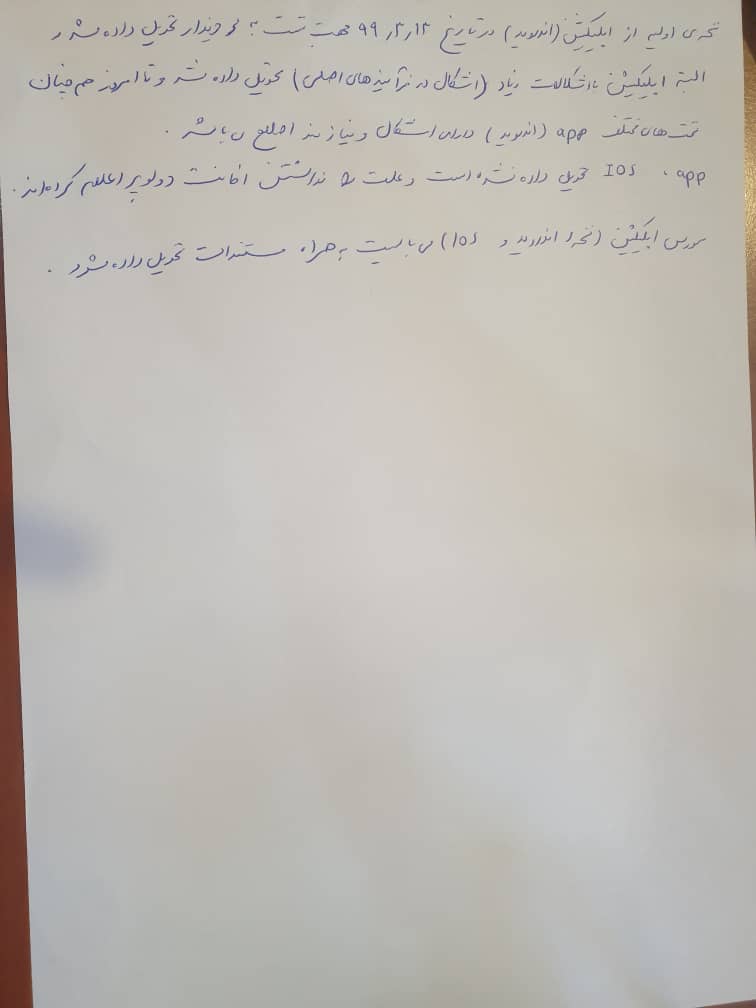 نسخه‌ی اولیه از اپلیکیشن (اندروید) در تاریخ ۹۹,۲,۱۳ جهت تست به خریدار تحویل داده شد و
البته اپلیکیشن با اشکالات زیاد (اشکال در فرآیندهای اصلی) تحویل داده شد و تا امروز هم چنان
قسمت‌های مختلف app (اندروید) دارای اشکال و نیازمند اصلاح می باشد .
app ، IOS تحویل داده نشده است و علت را نداشتن اکانت دولوپر اعلام کرده‌اند .
سورس اپلیکیشن (نسخه اندروید و IOS) می بایست به همراه مستندات تحویل داده شود .